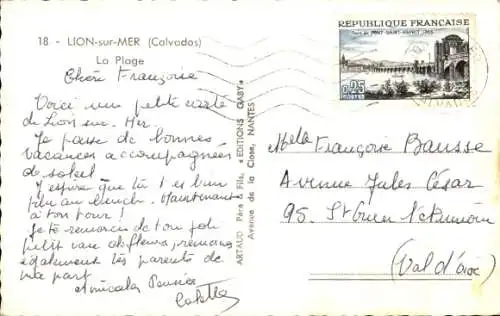 18 - LION-sur-MER (Calvados)
La Plage
Chère Françoise
Voici une petite carte
de Lion sur Mer.
Je passe de bonnes
vacances accompagnées
de soleil
J'espère que tu t'es bien
plu au Maintenant
à ton tour !
Je te remercie de ton joli
petit vase de fleurs, remercie
également tes parents de
ma part
Amicales Pensées
Colette
ARTAUD Père & Fils, «EDITIONS GABY»
Avenue de la Close, NANTES
REPUBLIQUE FRANÇAISE
PONT-SAINT-ESPRIT
0,25
POSTES
Melle Françoise Bausse
Avenue Jules César
95. St Ouen l'Aumône
(Val d'oise)